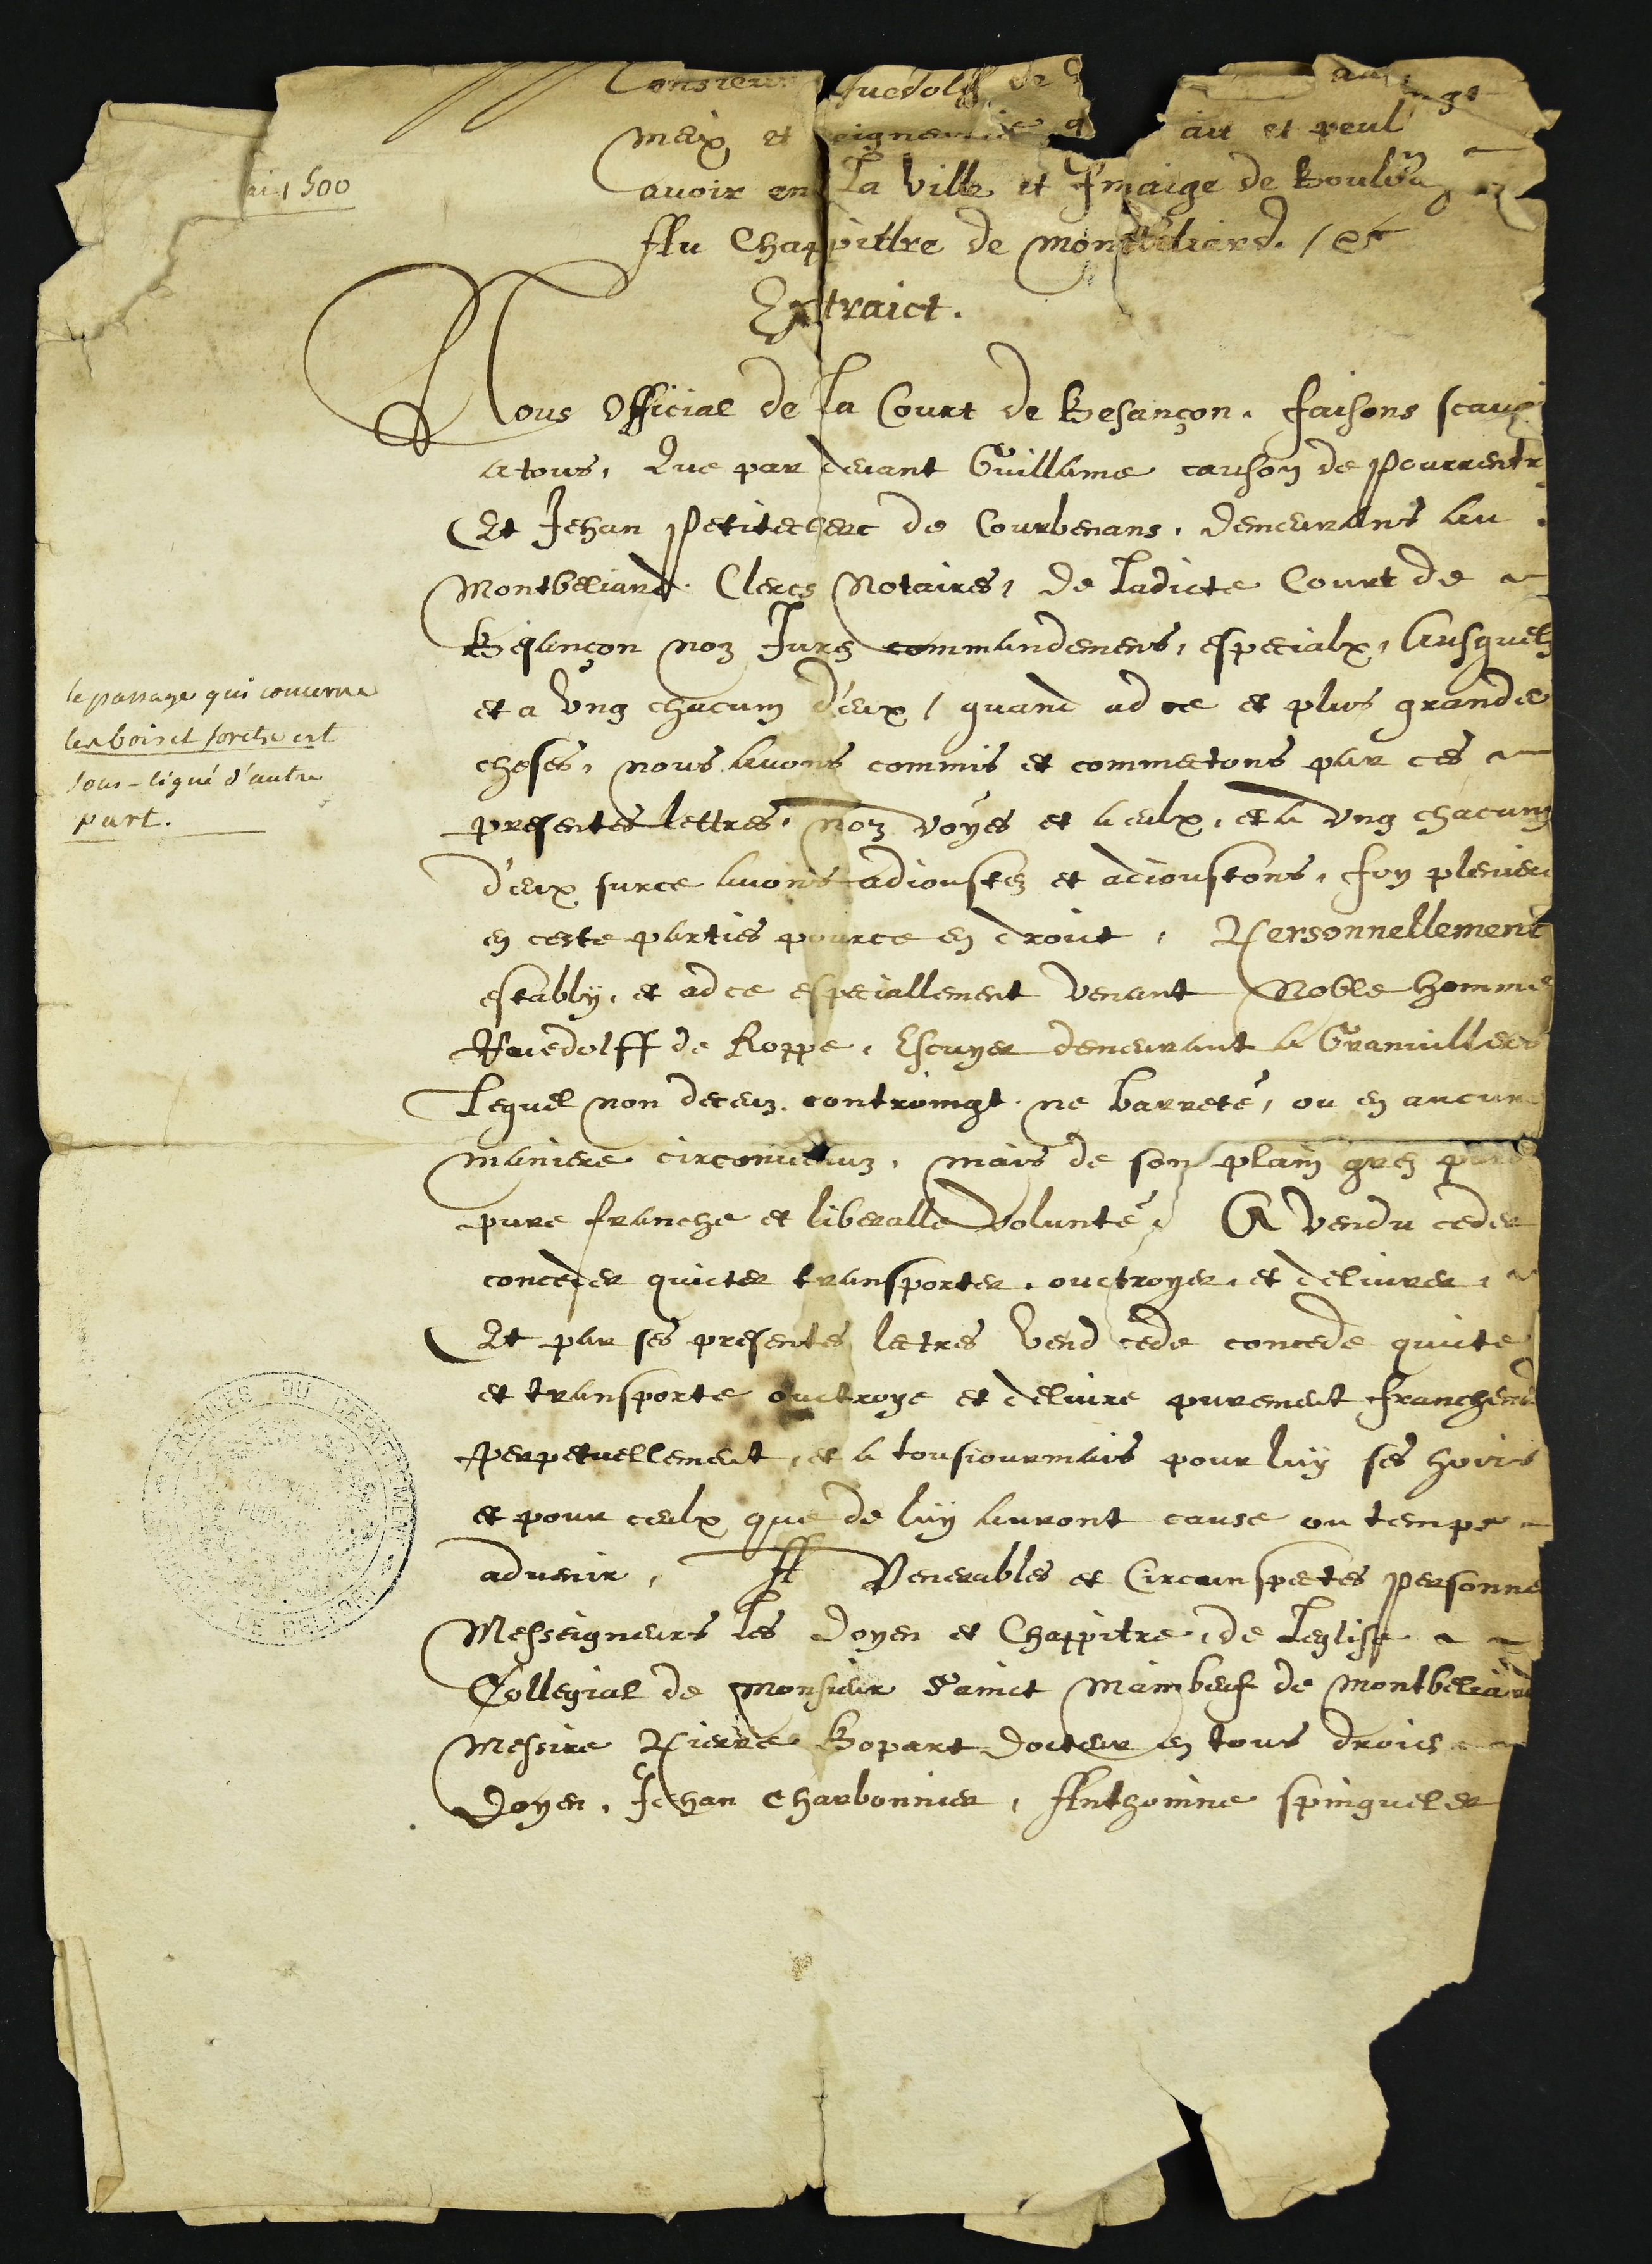 Monsieur Ruedolff de
meix et seigneurie q ait et peul
avoir en la ville et finaige de
Au Chappittre de montbeliard. / &c
Extraict.
ai 1500
Nous Official de la Court de Besançon. faisons scavoi
a tous, Que par devant Guillame causon de Pourrentr
Et Jehan Petiteclerc de Courbenans, demeurans au
Montbeliard. Clercs Notaires, de ladicte Court de
Besançon noz Jurez commandemens, especialx, Ausquelz
et a ung chacum d'eux / quand ad ce et plus grande
choses, nous avons commis et commectons par ces
presentes lettres, noz voyes et a eulx, et a ung chacung
d'eux surce avons adioustez et adioustons, foy pleniere
en ceste parties pource en droit, Personnellement
establÿ, et ad ce especiallement venant Noble homme
Ruedolff de Roppe, Escuyer demeurant a Granvillers
Lequel non deceuz. contraingt. ne barreté, ou en aucune
maniere circonvenuz, mais de son plain grez
pure franche et liberalle volunté, A vendu ceder
conceder quicter transporter, ouctroyer, et delivrer,
Et par ses presentes lectres vend cede concede quicte
et transporte ouctroye et delivre purement franchem
Perpetuellement, et a tousiourmais pour luÿ ses hoirs
et pour ceulx que de luÿ auront cause ou temps
advenir, A Venerables et Circunspectes Personne
Messeigneurs les Doyen et Chappitre, de Leglise
Collegial de Monsieur Sainct Mainbeuf de Montbeliard
Messire Pierre Bopart Docteur en tous droics
Doyen, Jehan Charbonnier, Anthoinne Spingueler
le passage qui concerne
les bois et forets est
sous-ligné d'autre
part.
ARCHIVES DU DEPARTEMENT
DE BELFORT